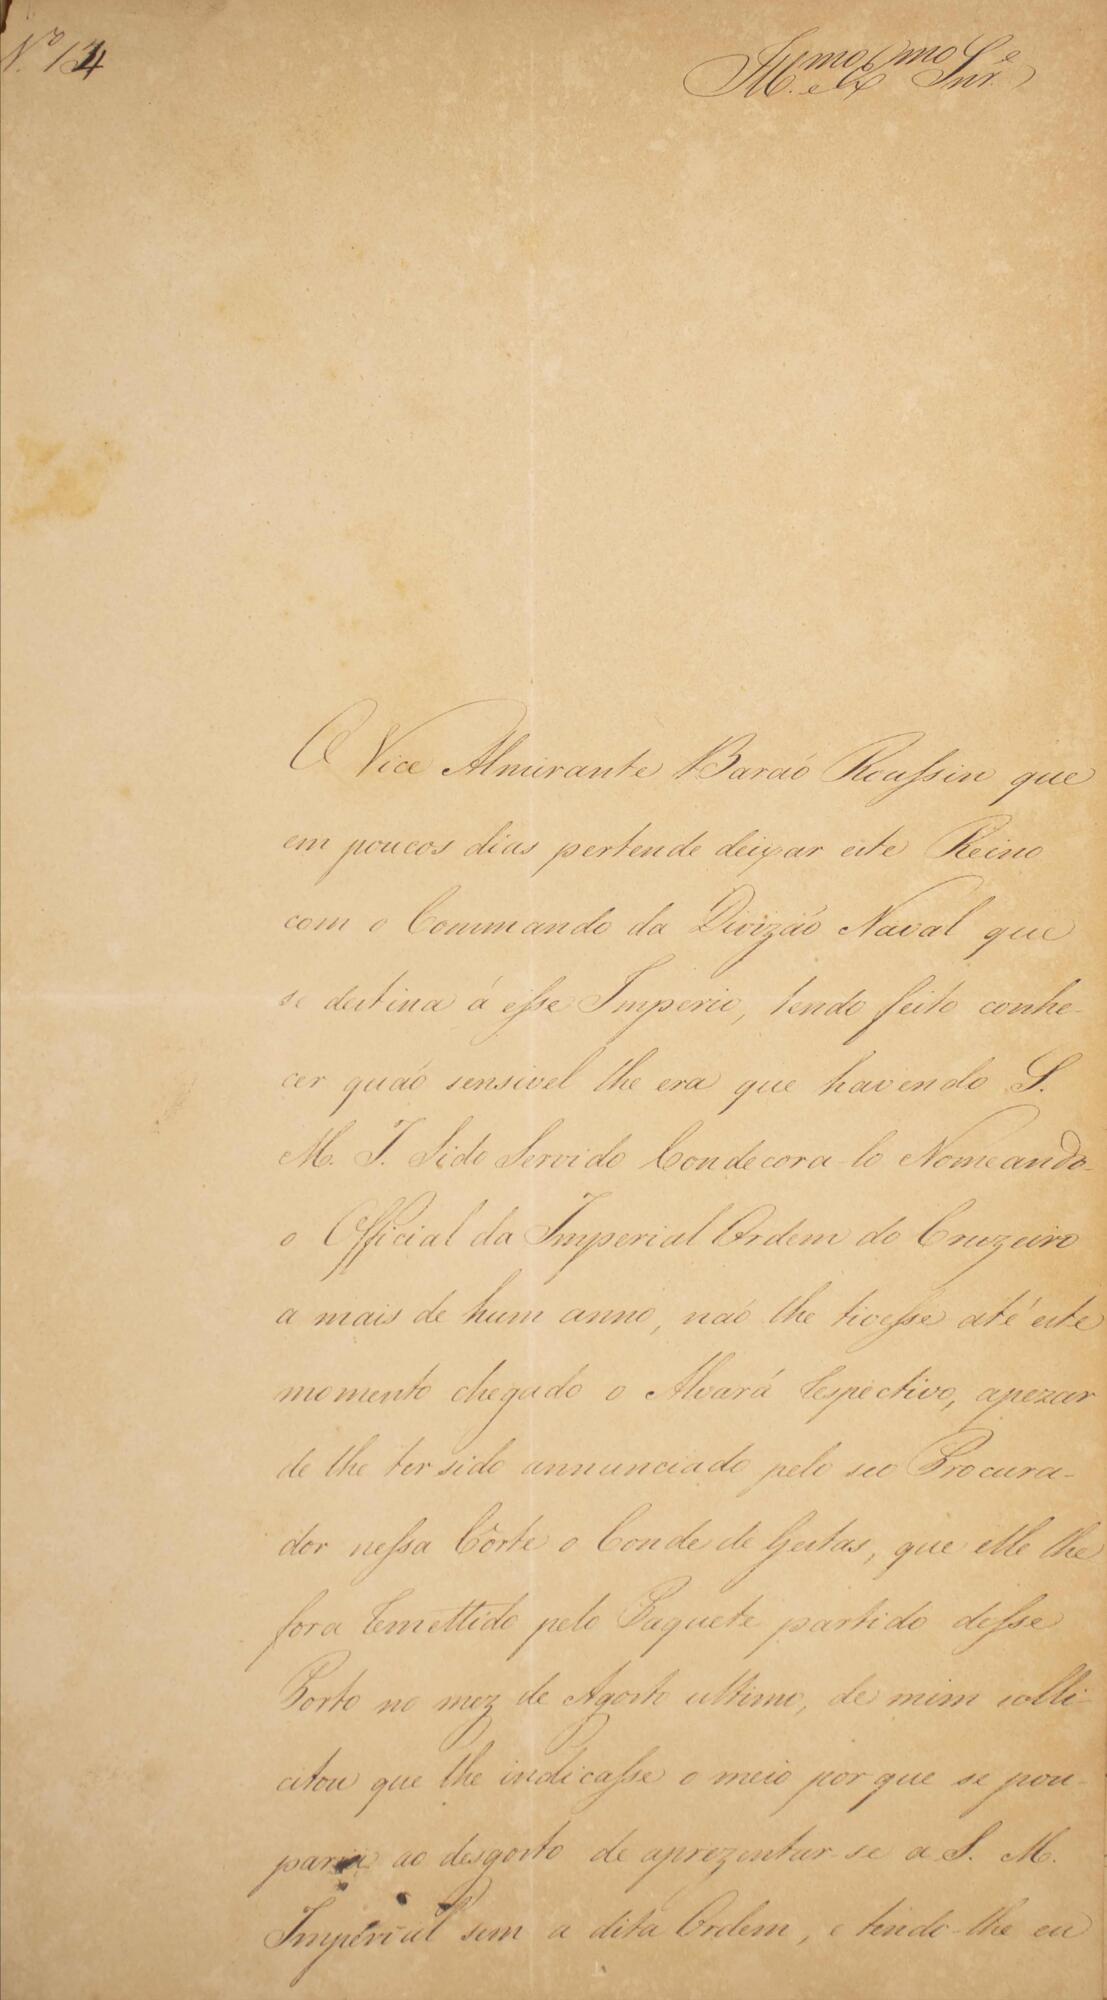 N.º 134
Illmo e Exmo Snr.e
O Vice Almirante Baraõ Roussin que
em poucos dias pertende deixar este Reino
com o Commando da Divizaõ Naval que
se destina á esse Imperio, tendo feito conhe-
cer quaõ sensivel lhe era que havendo S.
M. I. Sido Servido Condecora-lo Nomeando-
o Official da Imperial Ordem do Cruzeiro
a mais de hum anno, naõ lhe tivesse até este
momento chegado o Alvará respectivo, apezar
de lhe ter sido annunciado pelo seo Procura-
dor nessa Côrte o Conde de Gestas, que elle lhe
fora remettido pelo Paquete partido desse
Porto no mez de Agosto ultimo, de mim solli-
citou que lhe indicasse o meio por que se pou-
paria ao desgosto de aprezentar-se a S. M.
Imperial sem a dita Ordem, e tendo-lhe eu